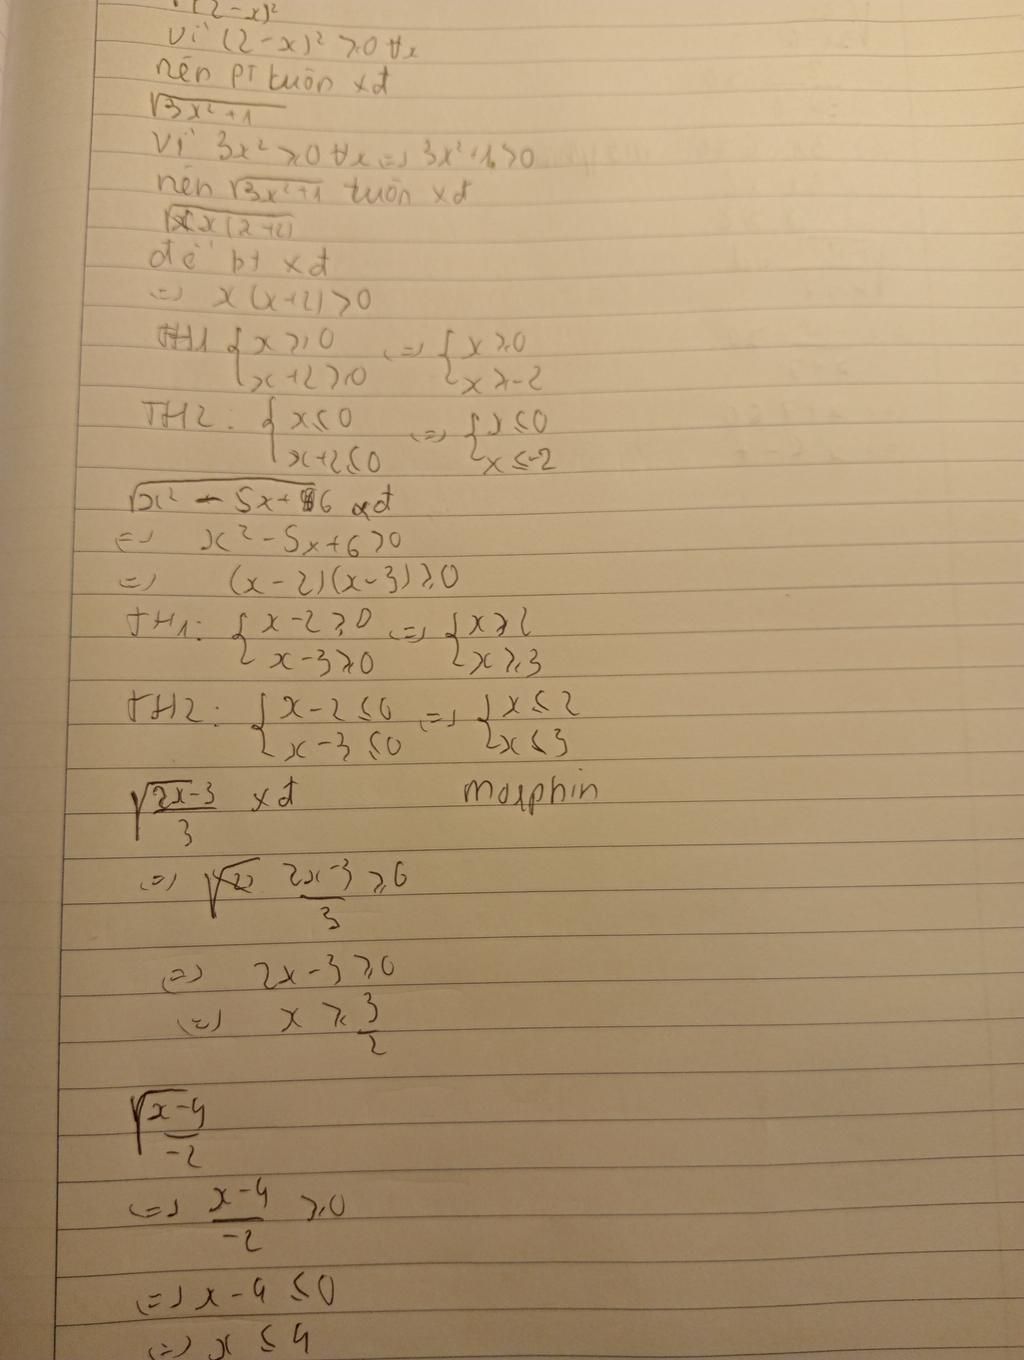 √(2-x)²
Vì (2-x)² ≥0 ∀x
nên PT luôn xđ
√3x²+1
Vì 3x² ≥0 ∀x => 3x²+1 >0
nên √3x²+1 luôn xđ
√x(x+2)
để bt xđ
=> x(x+2) ≥0
TH1 { x ≥0 <=> { x ≥0
x+2 ≥0 x ≥ -2
TH2: { x ≤0 <=> { x ≤0
x+2 ≤0 x ≤ -2
√x² - 5x+6 xđ
<=> x² - 5x+6 ≥0
<=> (x-2)(x-3) ≥0
TH1: { x-2 ≥0 <=> { x ≥ 2
x-3 ≥0 x ≥ 3
TH2: { x-2 ≤0 <=> { x ≤ 2
x-3 ≤0 x ≤ 3
√2x-3 xđ morphin
3
<=> 2x-3 ≥0
3
<=> 2x-3 ≥0
<=> x ≥ 3
2
√x-4
-2
<=> x-4 ≥0
-2
<=> x-4 ≤0
<=> x ≤ 4